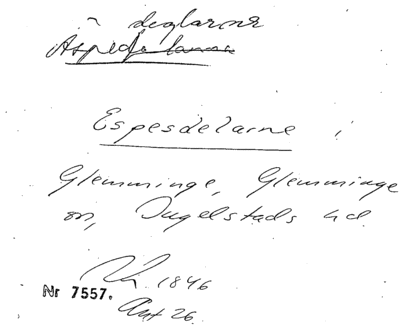 deglarne
Espesdelarne i
Glemminge, Glemminge
sn, Ingelstads hd
1846
Nr 7557.
Ant 26.